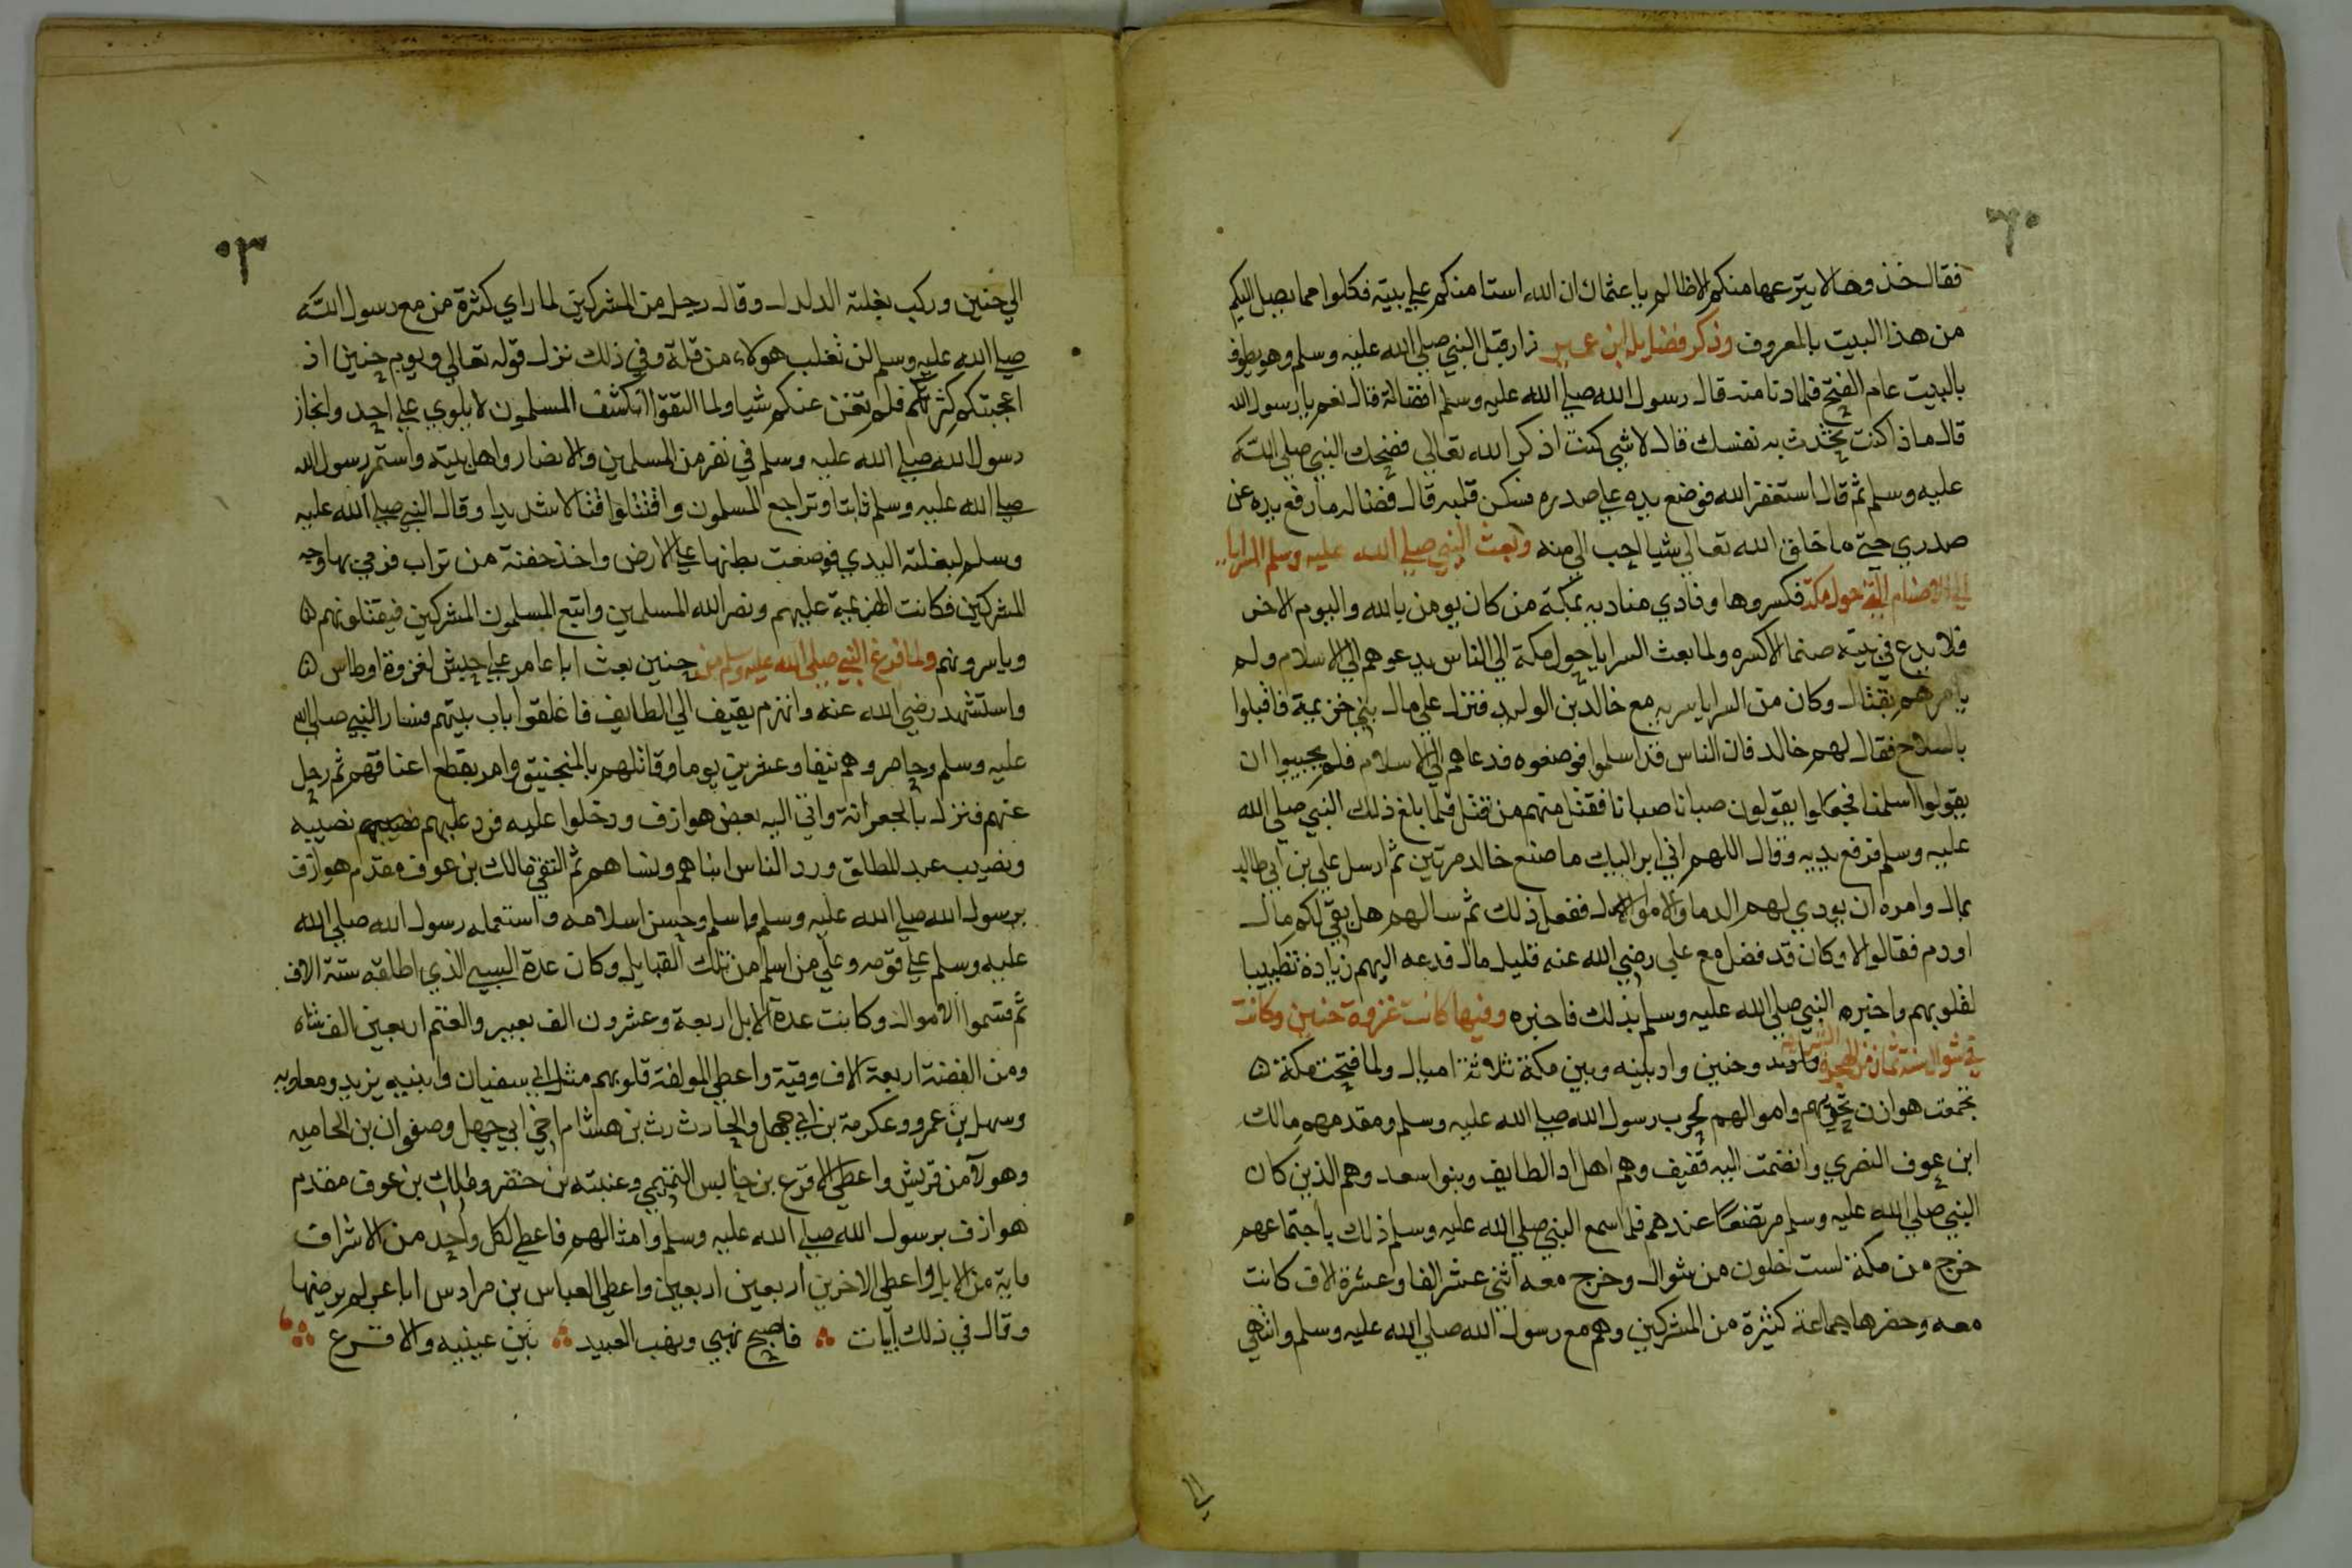 فقال خذوها لا ينزعها منكم الا ظالم يا عثمان ان الله استامنكم علي بيته فكلوا مما يصل اليكم
من هذا البيت بالمعروف وذكر فضايل ابن عمير زار قبل النبي صلي الله عليه وسلم وهو يطوف
بالبيت عام الفتح فلما دنا منه قال رسول الله صلي الله عليه وسلم افضالة قال نعم يا رسول الله
قال ماذا كنت تحدث به نفسك قال لا شي كنت اذكر الله تعالي فضحك النبي صلي الله
عليه وسلم ثم قال استغفر الله فوضع يده علي صدره فسكن قلبه قال فضاله ما رفع يده عن
صدري حتي ما خلق الله تعالي شيا احب الي منه وبعث النبي صلي الله عليه وسلم السرايا
الي الاصنام التي حول مكة فكسروها ونادي مناديه بمكة من كان يومن بالله واليوم الاخر
فلا يدع في بيته صنما الا كسره ولما بعث السرايا حول مكة الي الناس يدعوهم الي الاسلام ولم
يامرهم بقتال وكان من السرايا سريه مع خالد بن الوليد فنزل علي مال بني خزيمة فاقبلوا
بالسلاح فقال لهم خالد فان الناس قد اسلموا فوضعوه فدعاهم الي الاسلام فلم يجيبوا ان
يقولوا اسلمنا فجعلوا يقولون صبانا صبانا فقتل منهم من قتل فلما بلغ ذلك النبي صلي الله
عليه وسلم فرفع يديه وقال اللهم اني ابرا اليك ما صنع خالد مرتين ثم ارسل علي بن ابي طالب
بمال وامره ان يودي لهم الدما والاموال ففعل ذلك ثم سالهم هل بقي لكم مال
او دم فقالوا لا وكان قد فضل مع علي رضي الله عنه قليل مال فدعه اليهم زيادة تطييبا
لقلوبهم واخبره النبي صلي الله عليه وسلم بذلك فاخبره وفيها كانت غزوة حنين وكانت
في شوال سنة ثمان من الهجرة النبوية وحنين واد بينه وبين مكة ثلاثة اميال ولما فتحت مكة ۵
تجمعت هوازن بحريهم واموالهم لحرب رسول الله صلي الله عليه وسلم ومقدمهم مالك
ابن عوف النصري وانضمت اليه ثقيف وهم اهل الطايف وبنوا سعد وهم الذين كان
النبي صلي الله عليه وسلم مرتضعا عندهم فلما سمع النبي صلي الله عليه وسلم ذلك باجتماعهم
خرج من مكة لست خلون من شوال وخرج معه اثني عشر الفا وعشرة الاف كانت
معه وحضرها جماعة كثيرة من المشركين وهم مع رسول الله صلي الله عليه وسلم وانتهي
الي
الي حنين وركب بغلته الدلدل وقال رجل من المشركين لما راي كثرة من مع رسول الله
صلي الله عليه وسلم لن تغلب هولاء من قلة وفي ذلك نزل قوله تعالي ويوم حنين اذ
اعجبتكم كثرتكم فلم تغن عنكم شيا ولما التقوا انكشف المسلمون لا يلوي علي احد وانحاز
رسول الله صلي الله عليه وسلم في نفر من المسلمين والانصار واهل بيته واستمر رسول الله
صلي الله عليه وسلم ثابتا وتراجع المسلمون واقتتلوا قتالا شديدا وقال النبي صلي الله عليه
وسلم لبغلته البدي فوضعت بطنها علي الارض واخذ حفنة من تراب فرمي بها وجه
المشركين فكانت الهزيمة عليهم ونصر الله المسلمين واتبع المسلمون المشركين فيقتلونهم ۵
وياسرونهم ولما فرغ النبي صلي الله عليه وسلم من حنين بعث ابا عامر علي جيش لغزوة اوطاس ۵
واستشهد رضي الله عنه وانهزم بقيف الي الطايف فاغلقوا باب بيتهم فسار النبي صلي الله
عليه وسلم وحاصروهم نيفا وعشرين يوما وقاتلهم بالمنجنيق وامر بقطع اعناقهم ثم رحل
عنهم فنزل بالجعرانة واتي اليه بعض هوازن ودخلوا عليه فرد عليهم نصيبه
ونصيب عبد المطلق ورد الناس ابناهم ونساهم ثم التقي مالك بن عوف مقدم هوازن
برسول الله صلي الله عليه وسلم واسلم وحسن اسلامه واستعمله رسول الله صلي الله
عليه وسلم علي قومه وعلي من اسلم من تلك القبايل وكان عدة السبي الذي اطلقه ستة الاف
ثم قسموا الاموال وكانت عدة الابل اربعة وعشرون الف بعير والغنم اربعين الف شاه
ومن الفضة اربعة الاف وقية واعطي المولفة قلوبهم مثل ابي سفيان وابنيه يزيد ومعاويه
وسهل بن عمرو وعكرمة بن ابي جهل والحارث بن هشام اخي ابي جهل وصفوان بن الحاميه
وهولآ من قريش واعطي الاقرع بن حابس التميمي وعنبته بن حنفر ومالك بن عوف مقدم
هوازن برسول الله صلي الله عليه وسلم وامثالهم فاعطي لكل واحد من الاشراف
ماية من الابل واعطي الاخرين اربعين اربعين واعطي العباس بن مرادس اباعر لم يرضيها
وقال في ذلك ابيات فاصبح نهبي ونهب العبيد بين عينيه والاقرع